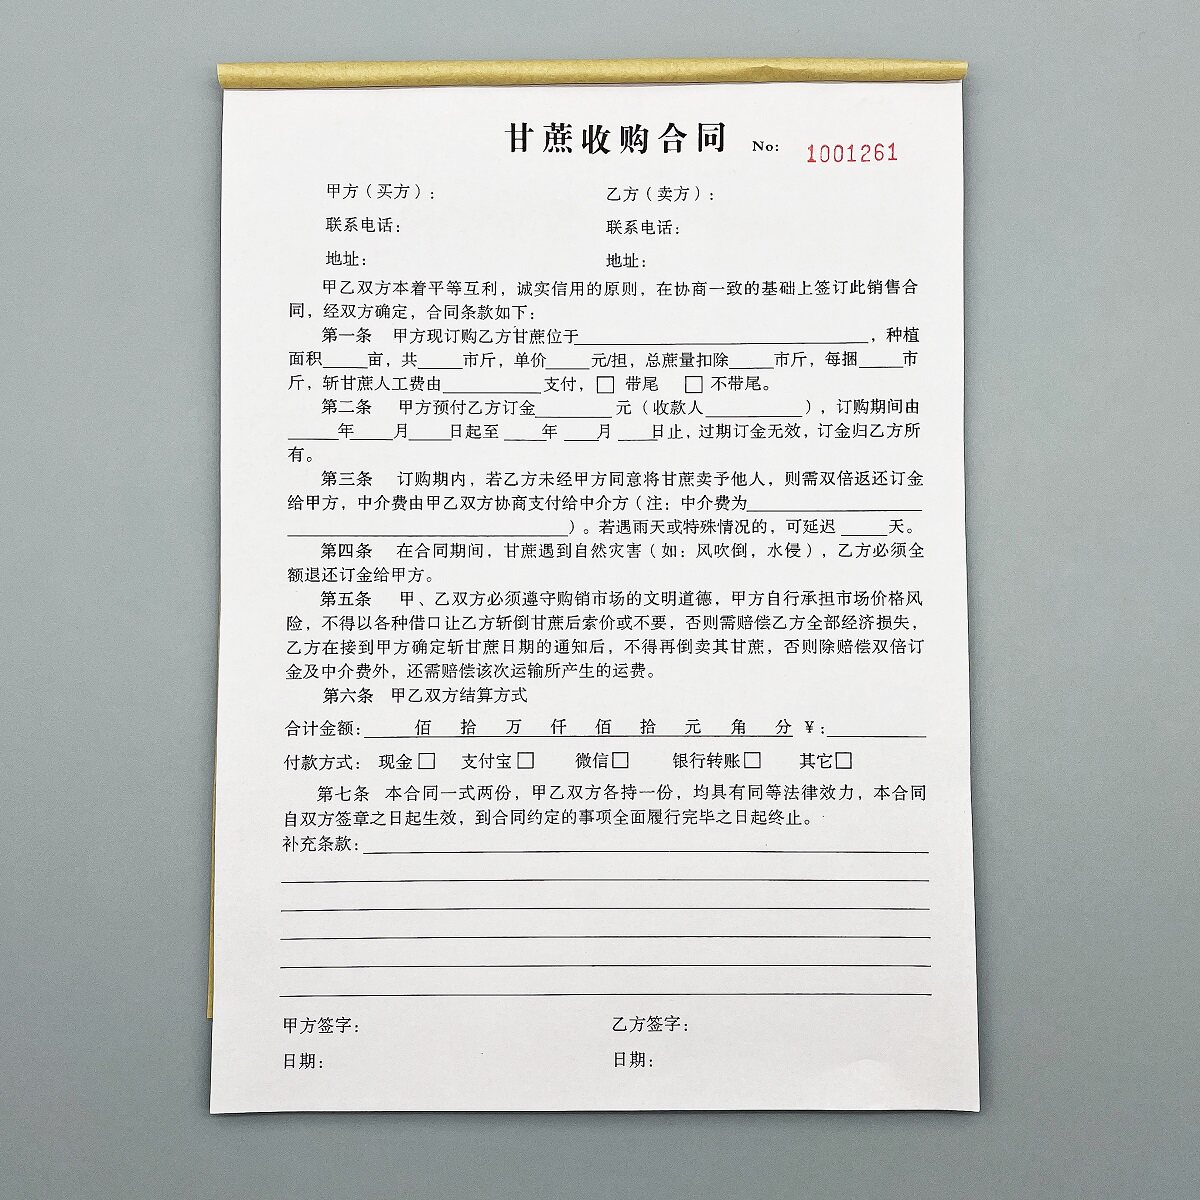 甘蔗收购合同 No: 1001261
甲方（买方）: 乙方（卖方）:
联系电话: 联系电话:
地址: 地址:
甲乙双方本着平等互利，诚实信用的原则，在协商一致的基础上签订此销售合
同，经双方确定，合同条款如下:
第一条 甲方现订购乙方甘蔗位于______，种植
面积____亩，共____市斤，单价____元/担，总蔗量扣除____市斤，每捆____市
斤，斩甘蔗人工费由______支付，□ 带尾 □ 不带尾。
第二条 甲方预付乙方订金______元（收款人______），订购期间由
____年____月____日起至____年____月____日止，过期订金无效，订金归乙方所
有。
第三条 订购期内，若乙方未经甲方同意将甘蔗卖予他人，则需双倍返还订金
给甲方，中介费由甲乙双方协商支付给中介方（注: 中介费为______
______）。若遇雨天或特殊情况的，可延迟____天。
第四条 在合同期间，甘蔗遇到自然灾害（如: 风吹倒，水侵），乙方必须全
额退还订金给甲方。
第五条 甲、乙双方必须遵守购销市场的文明道德，甲方自行承担市场价格风
险，不得以各种借口让乙方斩倒甘蔗后索价或不要，否则需赔偿乙方全部经济损失，
乙方在接到甲方确定斩甘蔗日期的通知后，不得再倒卖其甘蔗，否则除赔偿双倍订
金及中介费外，还需赔偿该次运输所产生的运费。
第六条 甲乙双方结算方式
合计金额: 佰 拾 万 仟 佰 拾 元 角 分 ¥:______
付款方式: 现金□ 支付宝□ 微信□ 银行转账□ 其它□
第七条 本合同一式两份，甲乙双方各持一份，均具有同等法律效力，本合同
自双方签章之日起生效，到合同约定的事项全面履行完毕之日起终止。
补充条款:______
甲方签字: 乙方签字:
日期: 日期: